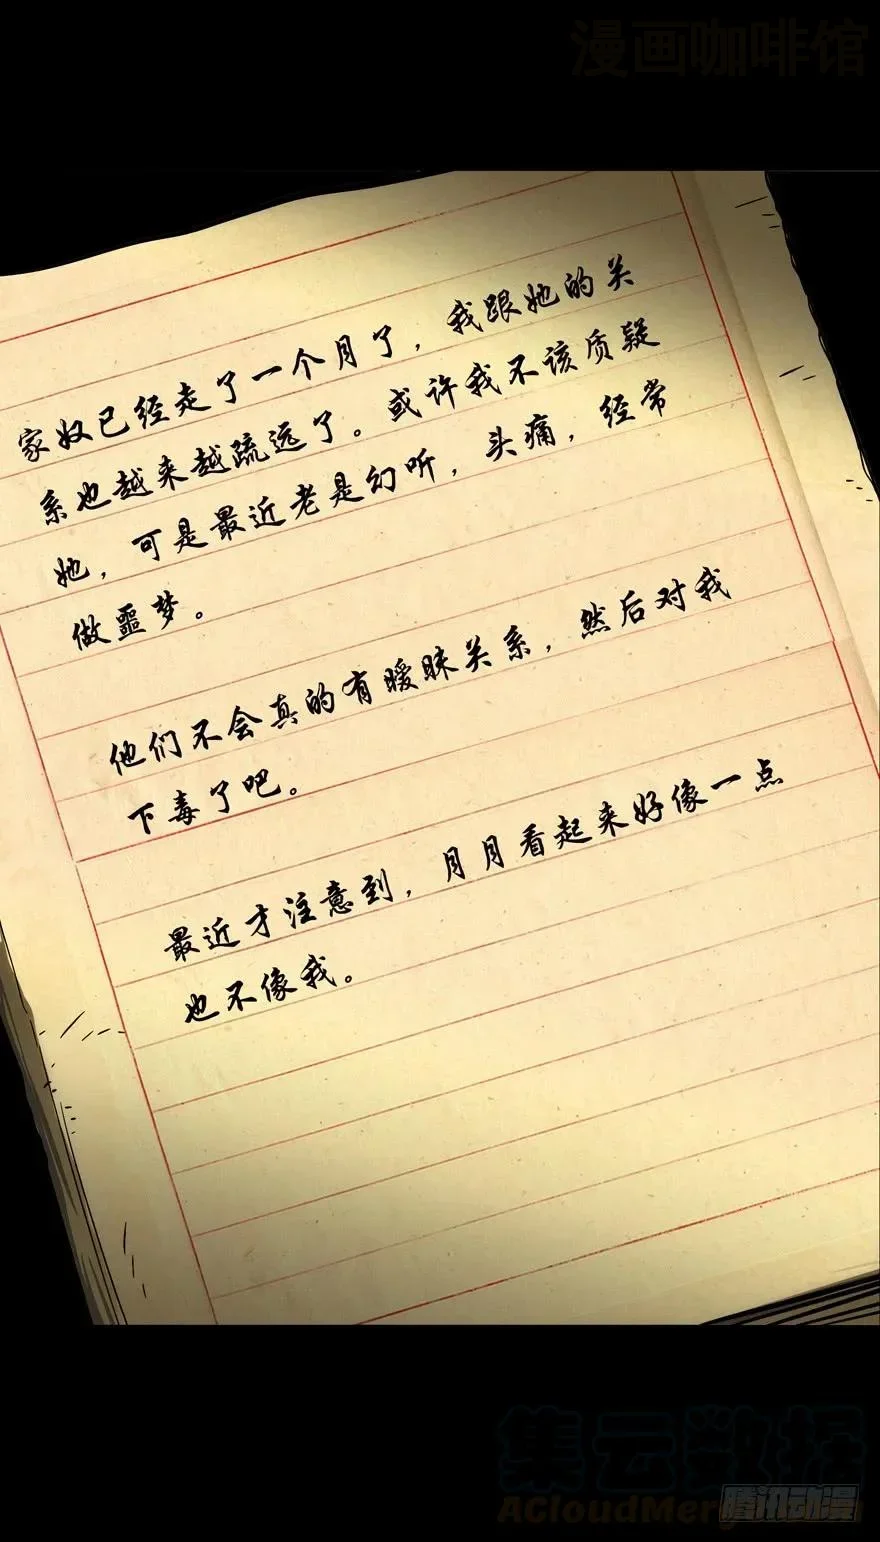 漫画咖啡馆
家奴已经走了一个月了，我跟她的关
系也越来越疏远了。或许我不该质疑
她，可是最近老是幻听，头痛，经常
做噩梦。
他们不会真的有暧昧关系，然后对我
下毒了吧。
最近才注意到，月月看起来好像一点
也不像我。
集云数据
ACloudMer
腾讯动漫